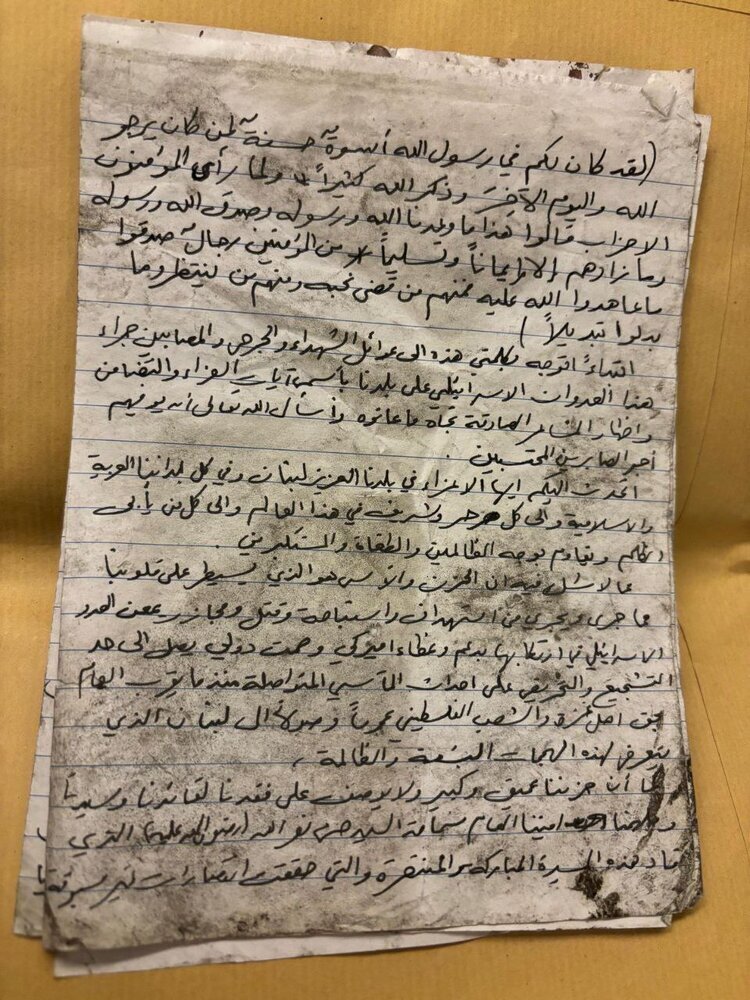 (لقد كان لكم في رسول الله أسوةٌ حسنةٌ لمن كان يرجو
الله واليوم الآخر وذكر الله كثيراً * ولما رأى المؤمنون
الاحزاب قالوا هذا ما وعدنا الله ورسوله وصدق الله ورسوله
وما زادهم إلا إيماناً وتسليماً * من المؤمنين رجالٌ صدقوا
ما عاهدوا الله عليه فمنهم من قضى نحبه ومنهم من ينتظر وما
بدلوا تبديلاً)
ابتداءً اتوجه بكلمتي هذه الى عوائل الشهداء والجرحى والمصابين جراء
هذا العدوان الاسرائيلي على بلدنا بأسمى آيات العزاء والتضامن
واظهار المشاعر الصادقة تجاه ما عانوه وأسأل الله تعالى أن يوفيهم
أجر الصابرين المحتسبين.
اتحدث اليكم ايها الاعزاء في بلدنا العزيز لبنان وفي كل بلداننا العربية
والاسلامية والى كل حر وشريف في هذا العالم والى كل من يأبى
الظلم ويقاوم بوجه الظالمين والطغاة والمستكبرين.
مما لا شك فيه ان الحزن والأسى هو الذي يسيطر على قلوبنا
مما جرى ويجري من استهداف واستباحة وقتل ومجازر يمعن العدو
الاسرائيلي في ارتكابها بدعم وغطاء اميركي وصمت دولي يصل الى حد
التشجيع والتحريض على احداث المآسي المتواصلة منذ ما يقرب العام
بحق اهل غزة والشعب الفلسطيني عموماً وصولاً الى لبنان الذي
يتعرض لهذه الهجمات البشعة والظالمة،
كما أن حزننا عميق وكبير ولا يوصف على فقدنا لقائدنا وسيدنا
اميننا العام سماحة السيد حسن نصر الله (رضوان الله عليه) الذي
قاد هذه المسيرة المباركة والمنتصرة والتي حققت انتصارات غير مسبوقة